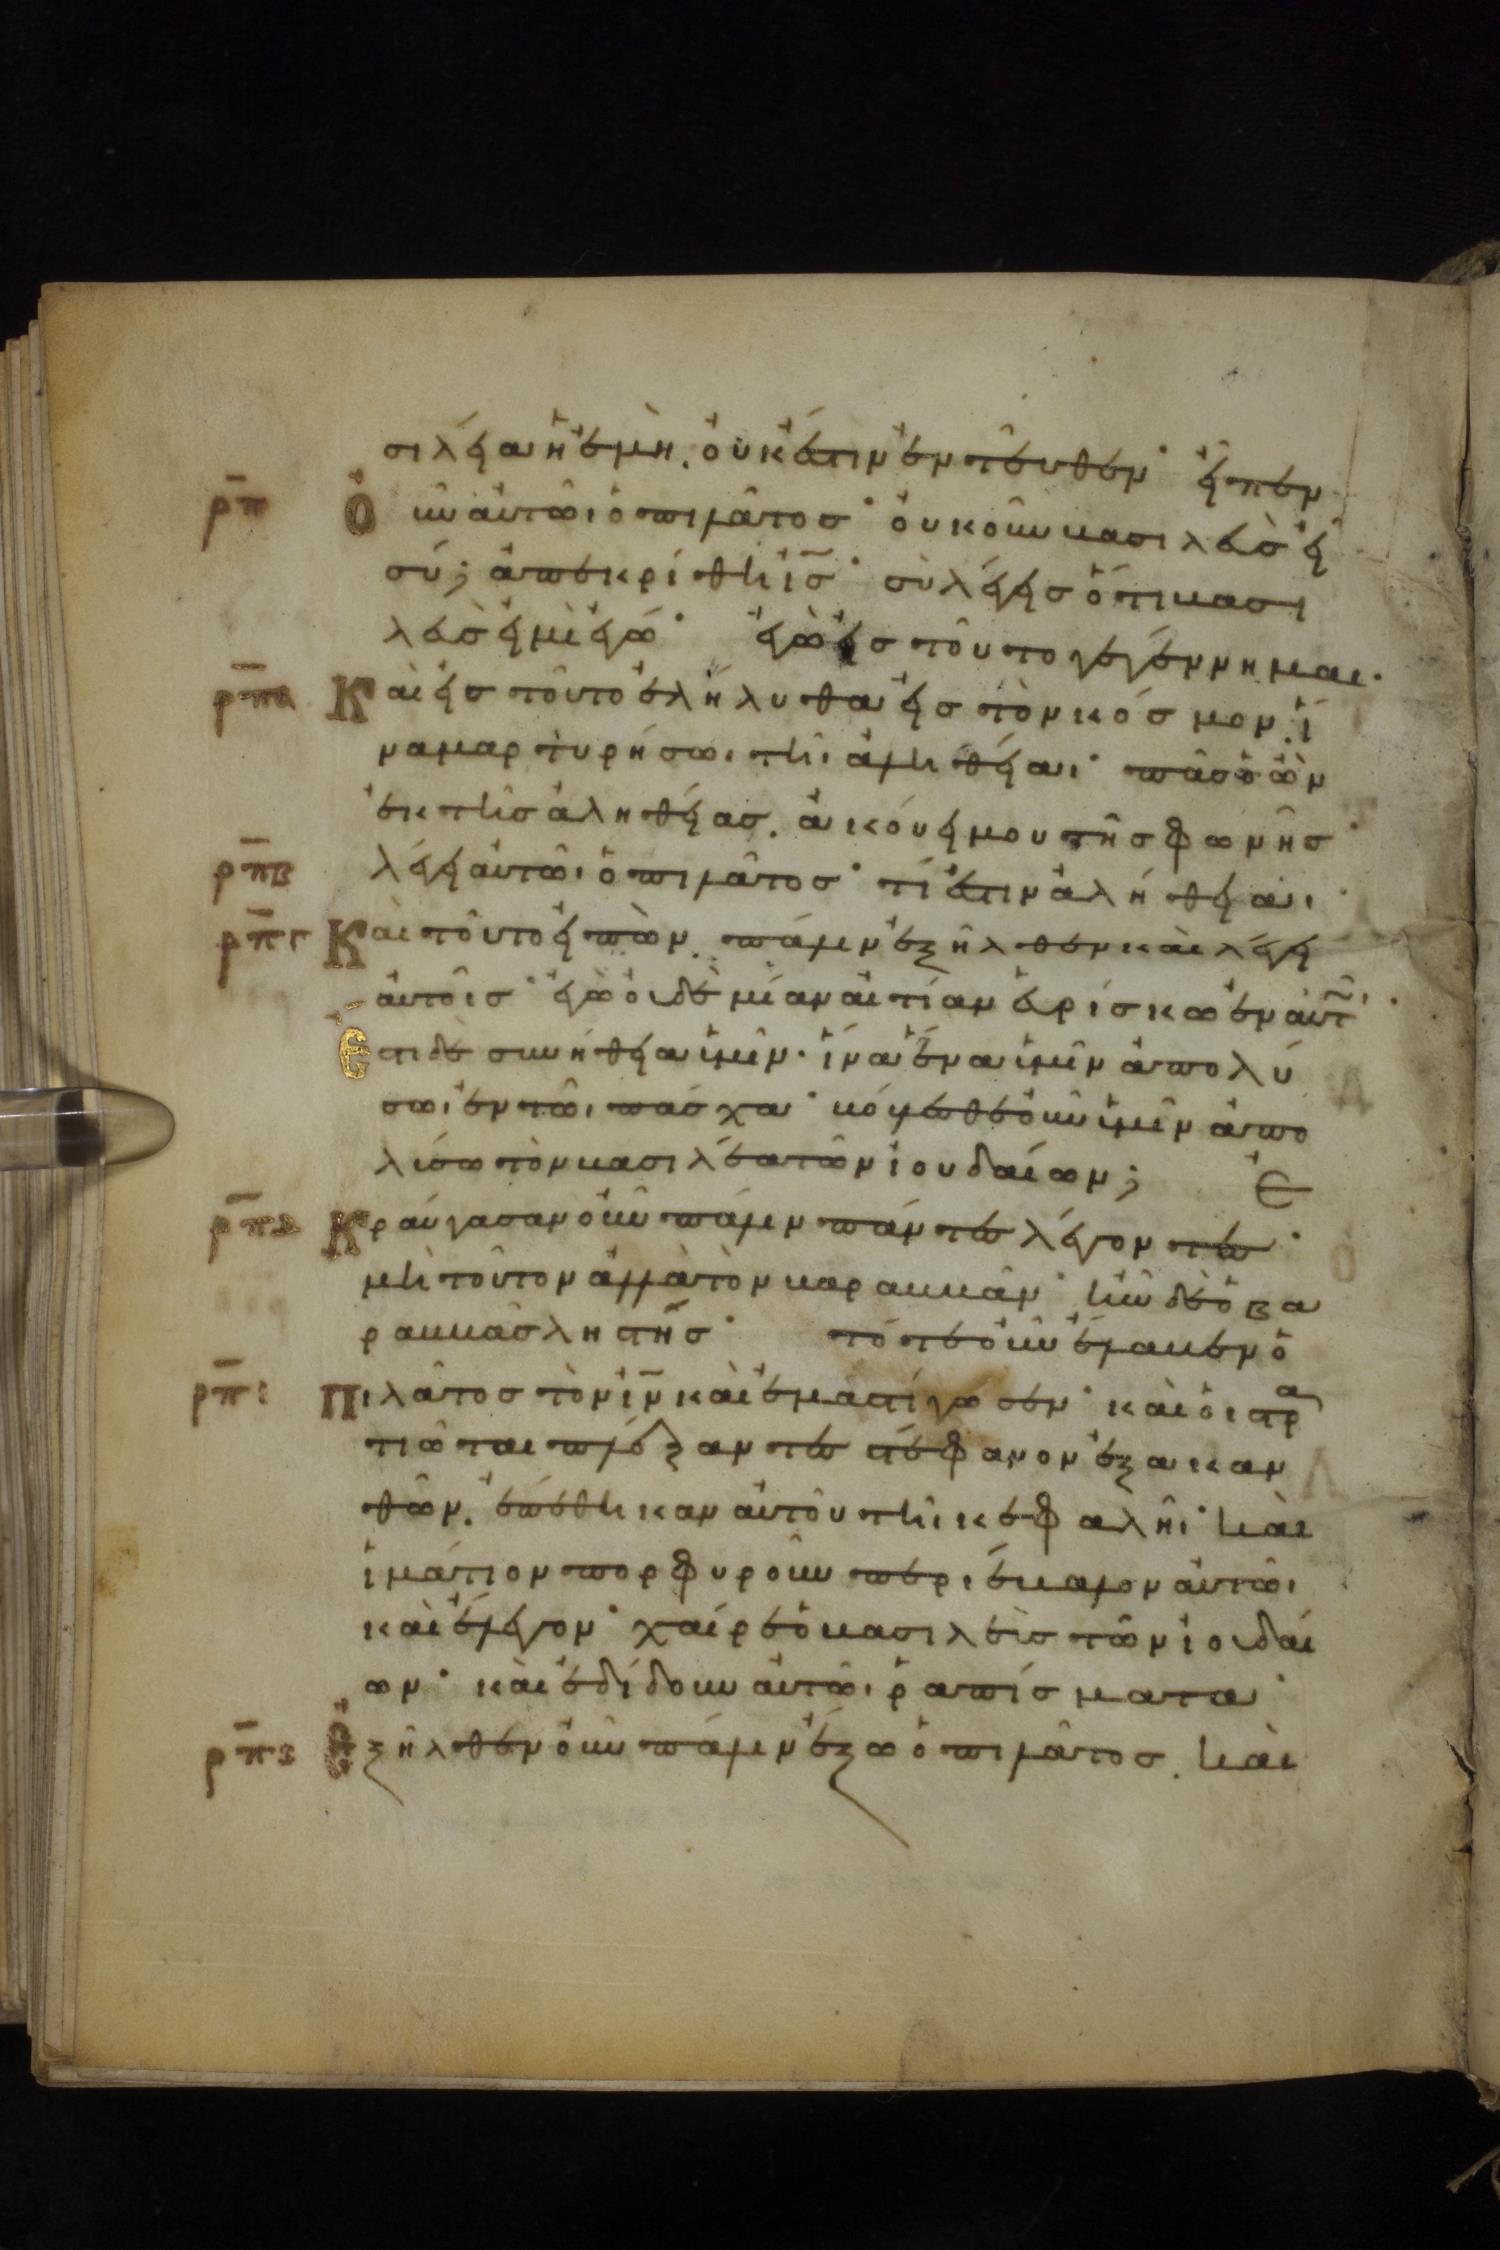 σιλεία ἡ ἐμὴ. οὐκ ἔστιν ἐντεῦθεν· εἶπεν
ρπ Ὀῦν αὐτῶι ὁ πιλᾶτος· οὐκοῦν βασιλεὺς εἶ
σύ; ἀπεκρίθη ις̅· σὺ λέγεις ὅτι βασι
λεὺς εἰμὶ ἐγώ· ἐγὼ εἰς τοῦτο γεγέννημαι·
ρπα Καὶ εἰς τοῦτο ἐλήλυθα εἰς τὸν κόσμον. ἵ
να μαρτυρήσω τῆι ἀληθείαι· πᾶς ὁ ὢν
ἐκ τῆς ἀληθείας. ἀκούει μου τῆς φωνῆς·
ρπβ λέγει αὐτῶι ὁ πιλᾶτος· τί ἐστιν ἀλήθεια·
ρπγ Καὶ τοῦτο εἰπὼν. πάλιν ἐξῆλθεν καὶ λέγει
αὐτοῖς· ἐγὼ οὐδεμίαν αἰτίαν εὑρίσκω ἐν αὐτῶ·
Ἔστι δὲ συνήθεια ὑμῖν· ἵνα ἕνα ὑμῖν ἀπολύ
σω ἐν τῶι πάσχα· βούλεσθε οὖν ὑμῖν ἀπο
λύσω τὸν βασιλέα τῶν ἰουδαίων; Ε
ρπδ Κραύγασαν οὖν πάλιν πάντες λέγοντες·
μὴ τοῦτον ἀλλὰ τὸν βαραββᾶν· ἦν δὲ ὁ βα
ραββᾶς λῃστῆς· τότε οὖν ἔλαβεν ὁ
ρπε Πιλᾶτος τὸν ιν̅ καὶ ἐμαστίγωσεν· καὶ οἱ στρα
τιῶται πλέξαντες στέφανον ἐξ ἀκαν
θῶν. ἐπέθηκαν αὐτοῦ τῆι κεφαλῆι· καὶ
ἱμάτιον πορφυροῦν περιέβαλον αὐτῶι
καὶ ἔλεγον· χαίρε ὁ βασιλεὺς τῶν ἰουδαί
ων· καὶ ἐδίδουν αὐτῶι ῥαπίσματα·
ρπϛ Ἐξῆλθεν οὖν πάλιν ἔξω ὁ πιλᾶτος. καὶ